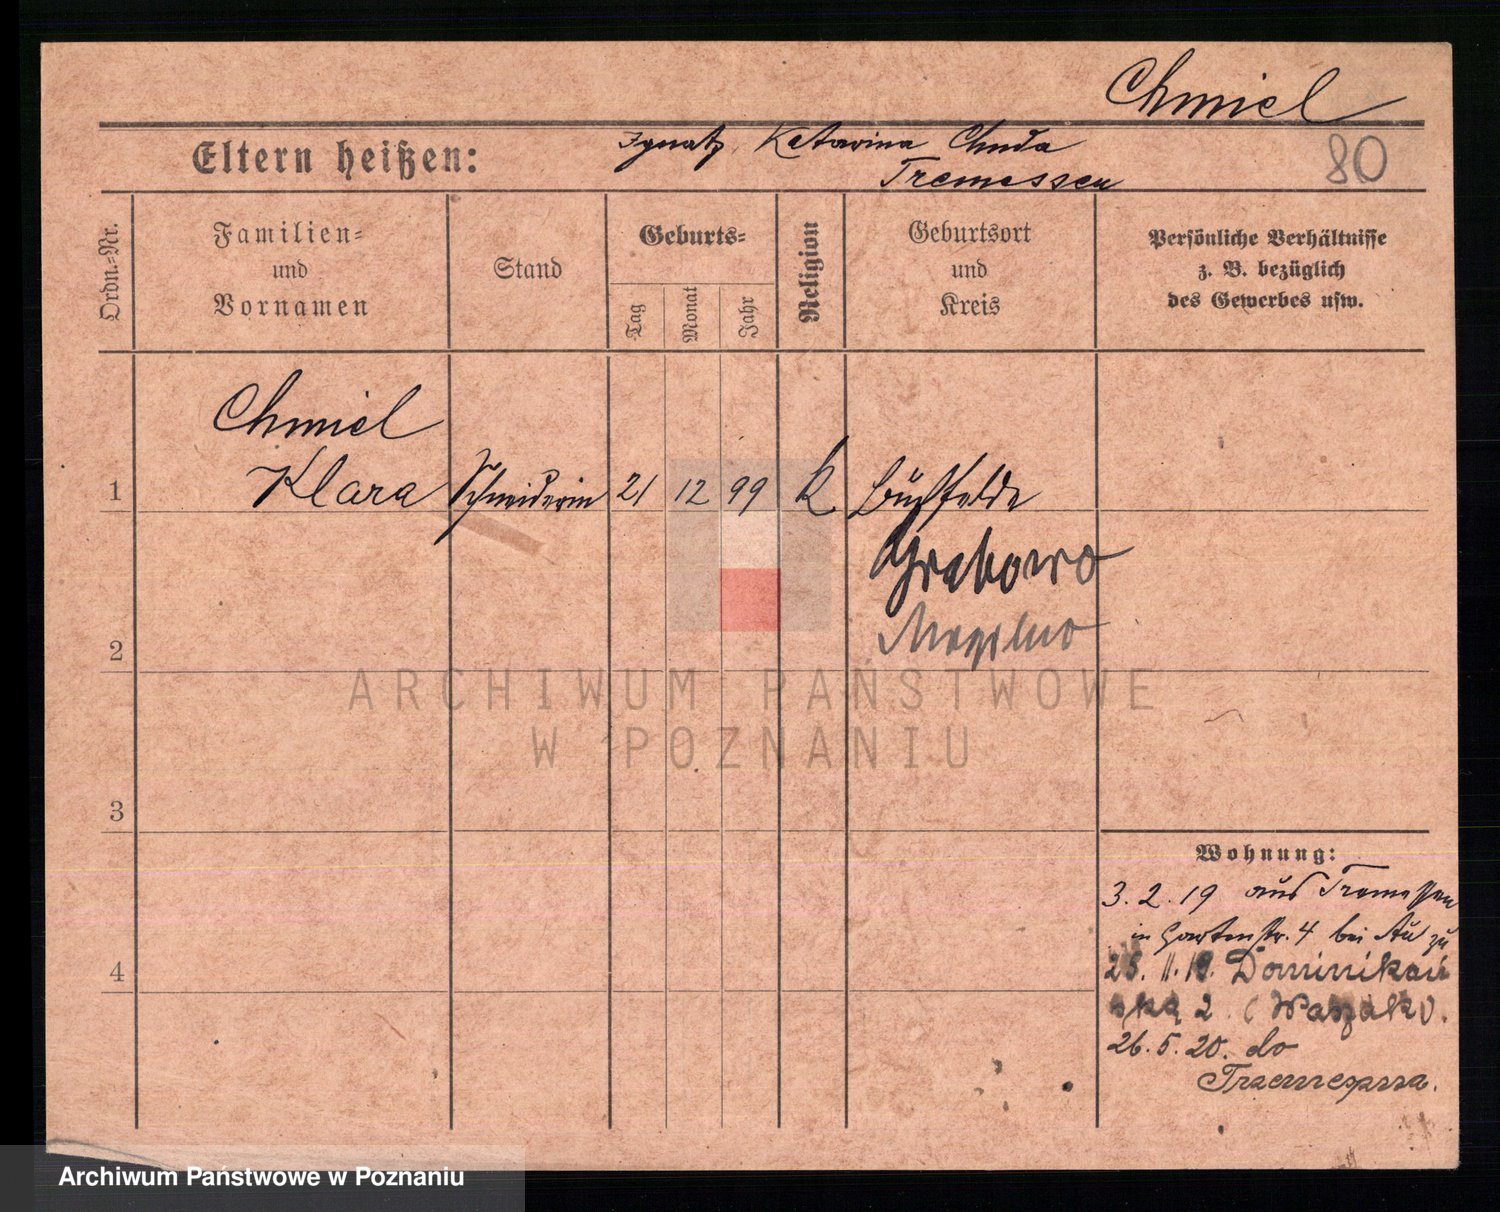 Chmiel
80
Eltern heißen: Ignatz, Katarina Chuda
Tremessen
Ordn.-Nr.
Familien-
und
Vornamen
Stand
Geburts-
Tag
Monat
Jahr
Religion
Geburtsort
und
Kreis
Persönliche Verhältnisse
z. B. bezüglich
des Gewerbes usw.
Chmiel
1 Klara Schneiderin 21 12 99 K Buchfelde
Grabowo
Mogilno
2
3
4
Wohnung:
3. 2. 19 aus Tremessen
in Gartenstr. 4 bei Au zu
25. 11. 19. Dominikań
ska 2 (Waszak).
26. 5. 20. do
Trzemeszna.
ARCHIWUM PAŃSTWOWE
W POZNANIU
Archiwum Państwowe w Poznaniu